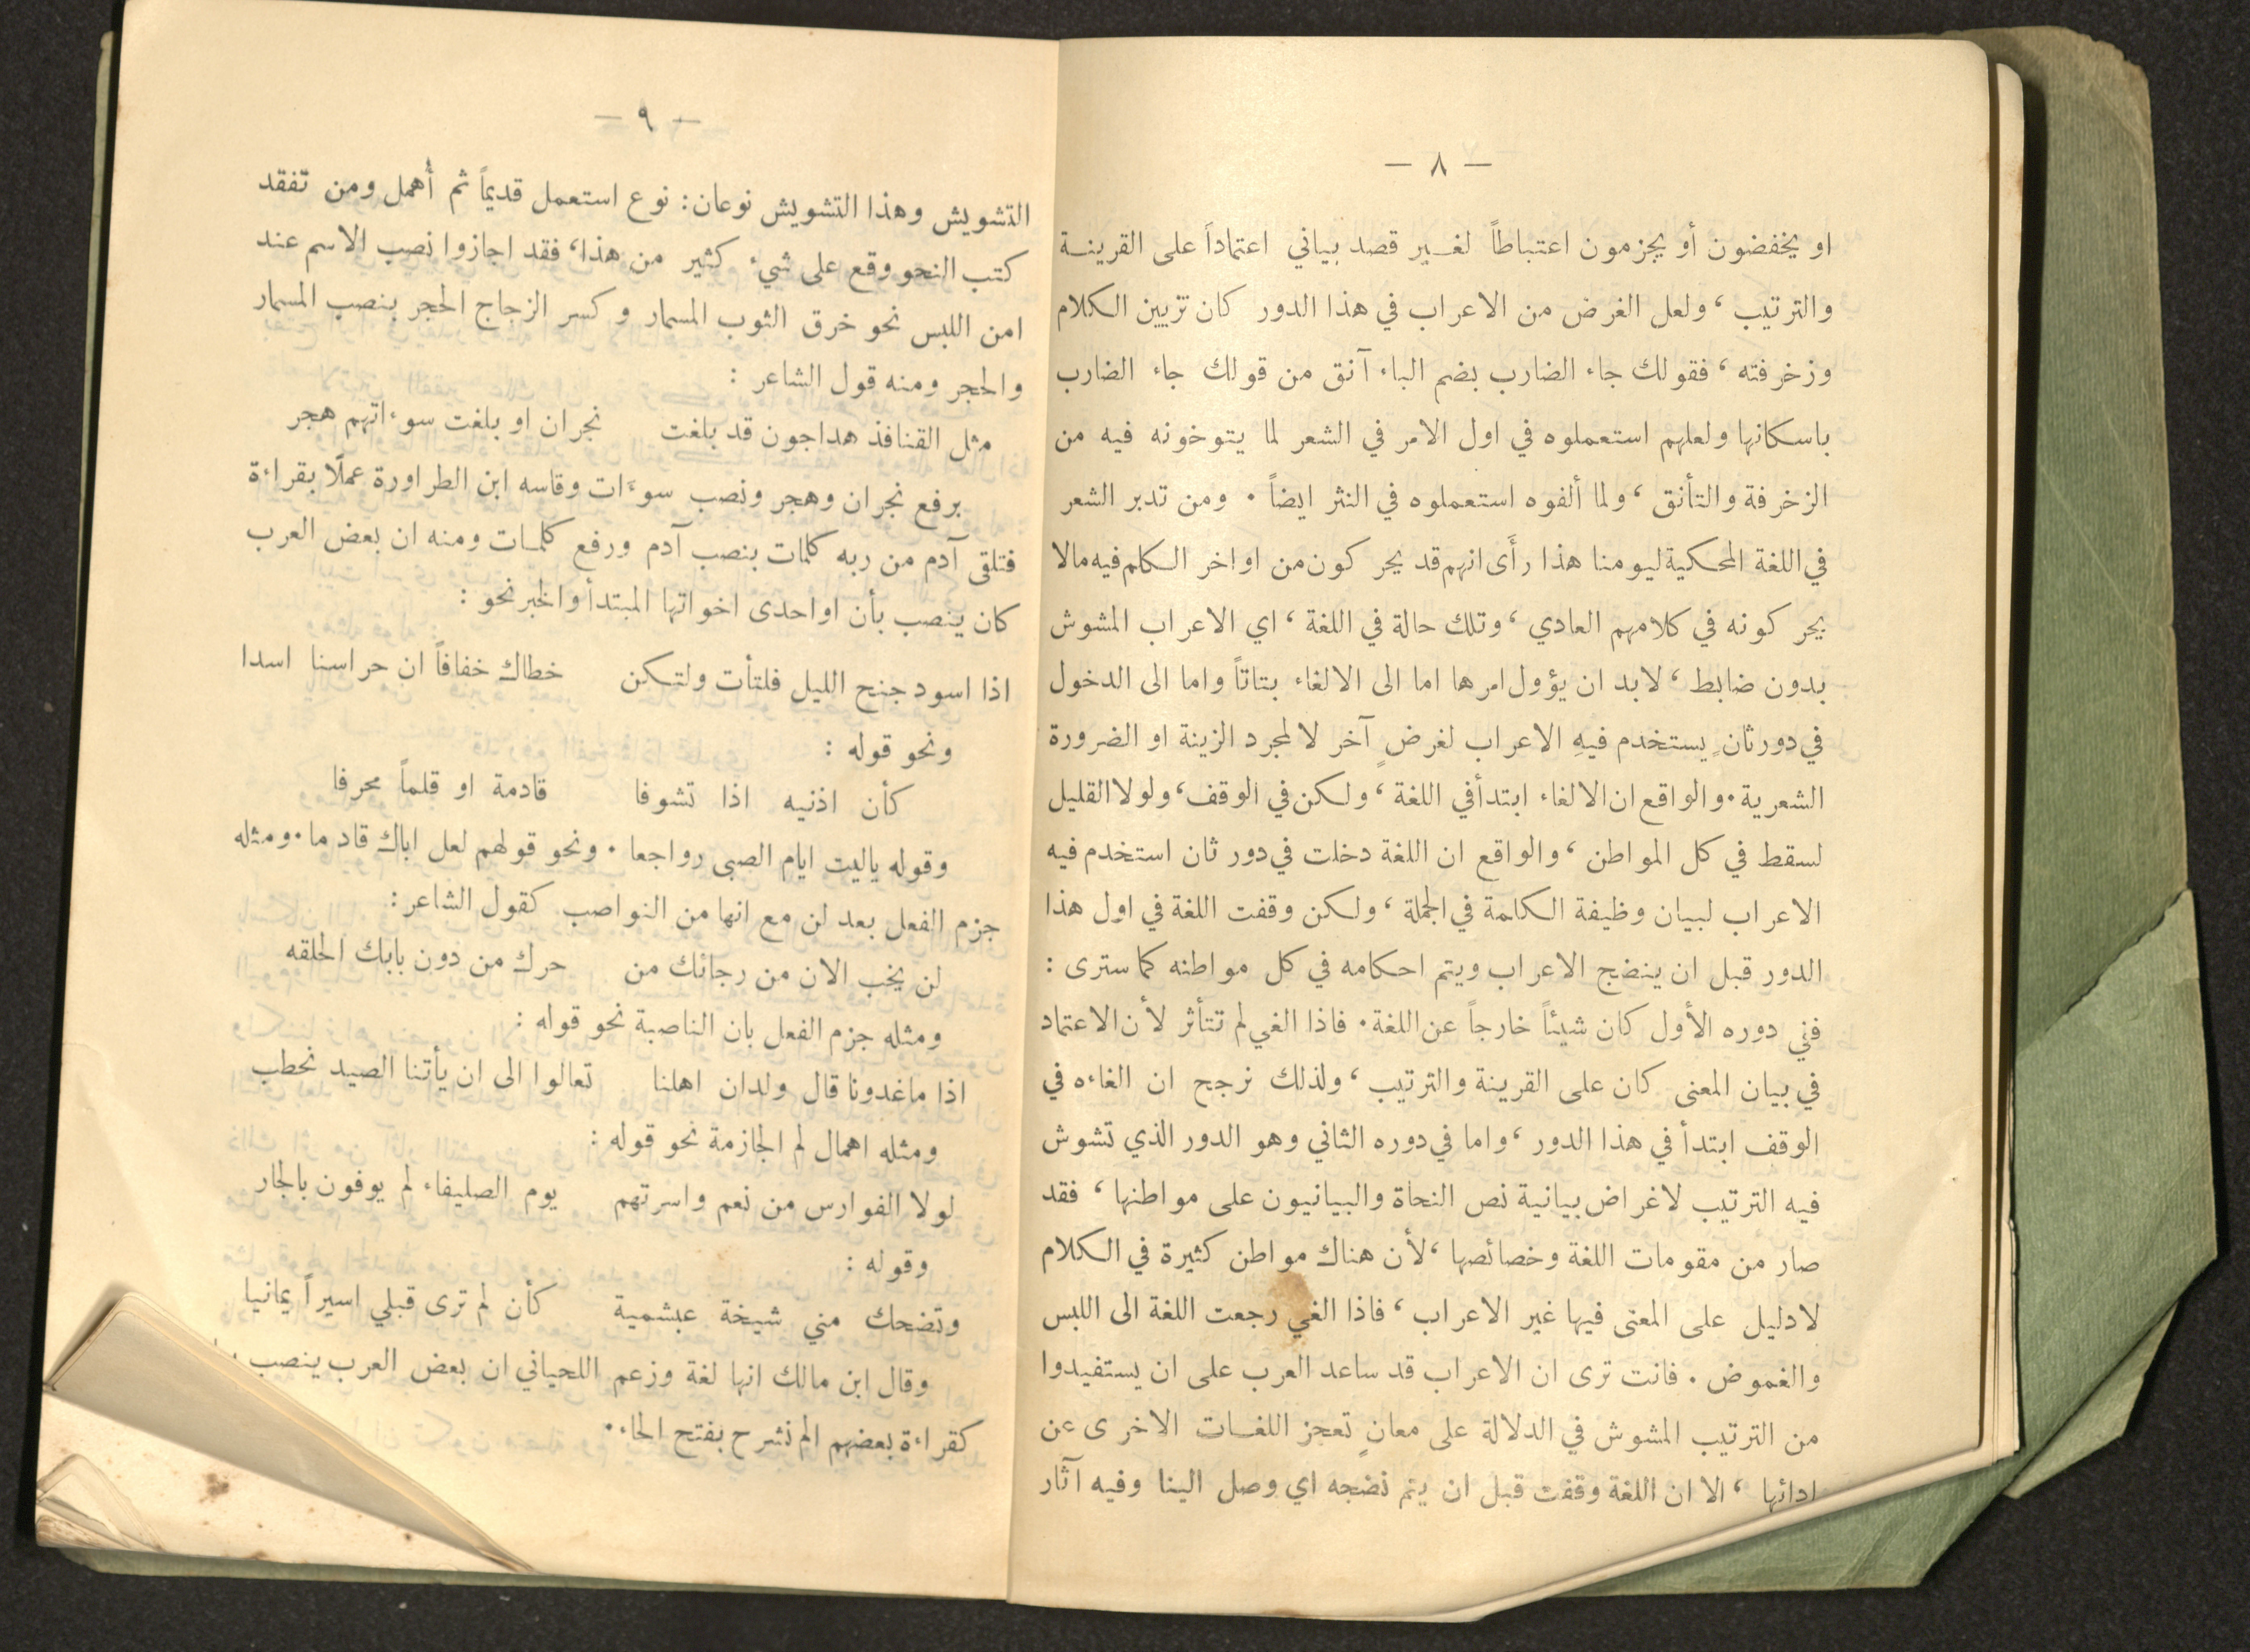 — ٨ —
او يخفضون أو يجزمون اعتباطاً لغير قصد بياني اعتماداً على القرينة
والترتيب ، ولعل الغرض من الاعراب في هذا الدور كان تزيين الكلام
وزخرفته ، فقولك جاء الضارب بضم الباء آنق من قولك جاء الضارب
باسكانها ولعلهم استعملوه في اول الامر في الشعر لما يتوخونه فيه من
الزخرفة والتأنق ، ولما ألفوه استعملوه في النثر ايضاً . ومن تدبر الشعر
في اللغة المحكية ليومنا هذا رأى انهم قد يحركون من اواخر الكلم فيه مالا
يحركونه في كلامهم العادي ، وتلك حالة في اللغة ، اي الاعراب المشوش
بدون ضابط ، لابد ان يؤول امرها اما الى الالغاء بتاتاً واما الى الدخول
في دور ثانٍ يستخدم فيهِ الاعراب لغرضٍ آخر لا لمجرد الزينة او الضرورة
الشعرية . والواقع ان الالغاء ابتدأ في اللغة ، ولكن في الوقف ، ولولا القليل
لسقط في كل المواطن ، والواقع ان اللغة دخلت في دور ثان استخدم فيه
الاعراب لبيان وظيفة الكلمة في الجملة ، ولكن وقفت اللغة في اول هذا
الدور قبل ان ينضج الاعراب ويتم احكامه في كل مواطنه كما سترى :
ففي دوره الأول كان شيئاً خارجاً عن اللغة . فاذا الغي لم تتأثر لأن الاعتماد
في بيان المعنى كان على القرينة والترتيب ، ولذلك نرجح ان الغاءه في
الوقف ابتدأ في هذا الدور ، واما في دوره الثاني وهو الدور الذي تشوش
فيه الترتيب لاغراض بيانية نص النحاة والبيانيون على مواطنها ، فقد
صار من مقومات اللغة وخصائصها ، لأن هناك مواطن كثيرة في الكلام
لادليل على المعنى فيها غير الاعراب ، فاذا الغي رجعت اللغة الى اللبس
والغموض . فانت ترى ان الاعراب قد ساعد العرب على ان يستفيدوا
من الترتيب المشوش في الدلالة على معانٍ تعجز اللغات الاخرى عن
ادائها ، الا ان اللغة وقفت قبل ان يتم نضجه اي وصل الينا وفيه آثار
— ٩ —
التشويش وهذا التشويش نوعان : نوع استعمل قديماً ثم أُهمل ومن تفقد
كتب النحو وقع على شيء كثير من هذا ، فقد اجازوا نصب الاسم عند
امن اللبس نحو خرق الثوب المسمار وكسر الزجاج الحجر بنصب المسمار
والحجر ومنه قول الشاعر :
مثل القنافذ هداجون قد بلغت نجران او بلغت سوءاتهم هجر
برفع نجران وهجر ونصب سوءات وقاسه ابن الطراورة عملًا بقراءة
فتلقى آدم من ربه كلمات بنصب آدم ورفع كلمات ومنه ان بعض العرب
كان ينصب بأن او احدى اخواتها المبتدأ والخبر نحو :
اذا اسود جنح الليل فلتأت ولتكن خطاك خفافاً ان حراسنا اسدا
ونحو قوله :
كأن اذنيه اذا تشوفا قادمة او قلماً محرفا
وقوله ياليت ايام الصبى رواجعا . ونحو قولهم لعل اباك قادما . ومثله
جزم الفعل بعد لن مع انها من النواصب كقول الشاعر :
لن يخب الان من رجائك من حرك من دون بابك الحلقه
ومثله جزم الفعل بان الناصبة نحو قوله :
اذا ماغدونا قال ولدان اهلنا تعالوا الى ان يأتنا الصيد نحطب
ومثله اهمال لم الجازمة نحو قوله :
لولا الفوارس من نعم واسرتهم يوم الصليفاء لم يوفون بالجار
وقوله :
وتضحك مني شيخة عبشمية كأن لم ترى قبلي اسيراً يمانيا
وقال ابن مالك انها لغة وزعم اللحياني ان بعض العرب ينصب
كقراءة بعضهم الم نشرح بفتح الحاء .